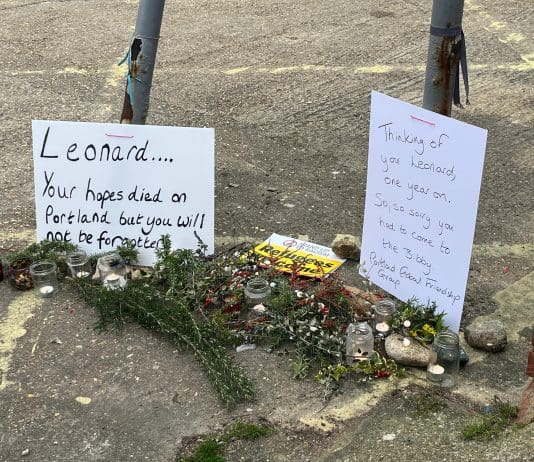 Leonard....
Your hopes died on
Portland but you will
not be forgotten
Thinking of
you Leonard,
one year on.
So, so sorry you
had to come to
the Bibby
Portland Global Friendship
Group
STAND UP
Refugees